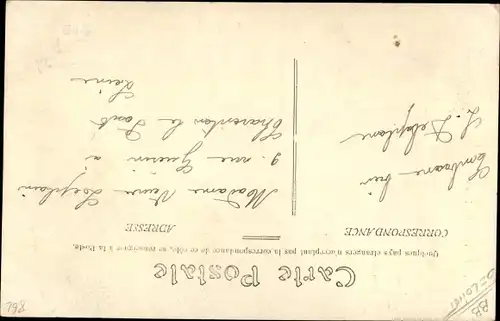 Carte Postale
Quelques pays étrangers n'acceptant pas la correspondance de ce côté, se renseigner à la Poste.
CORRESPONDANCE
ADRESSE
L. Delaplane
Madame Veuve
9. rue Guérin à
Charenton le Pont
Seine
862
BB